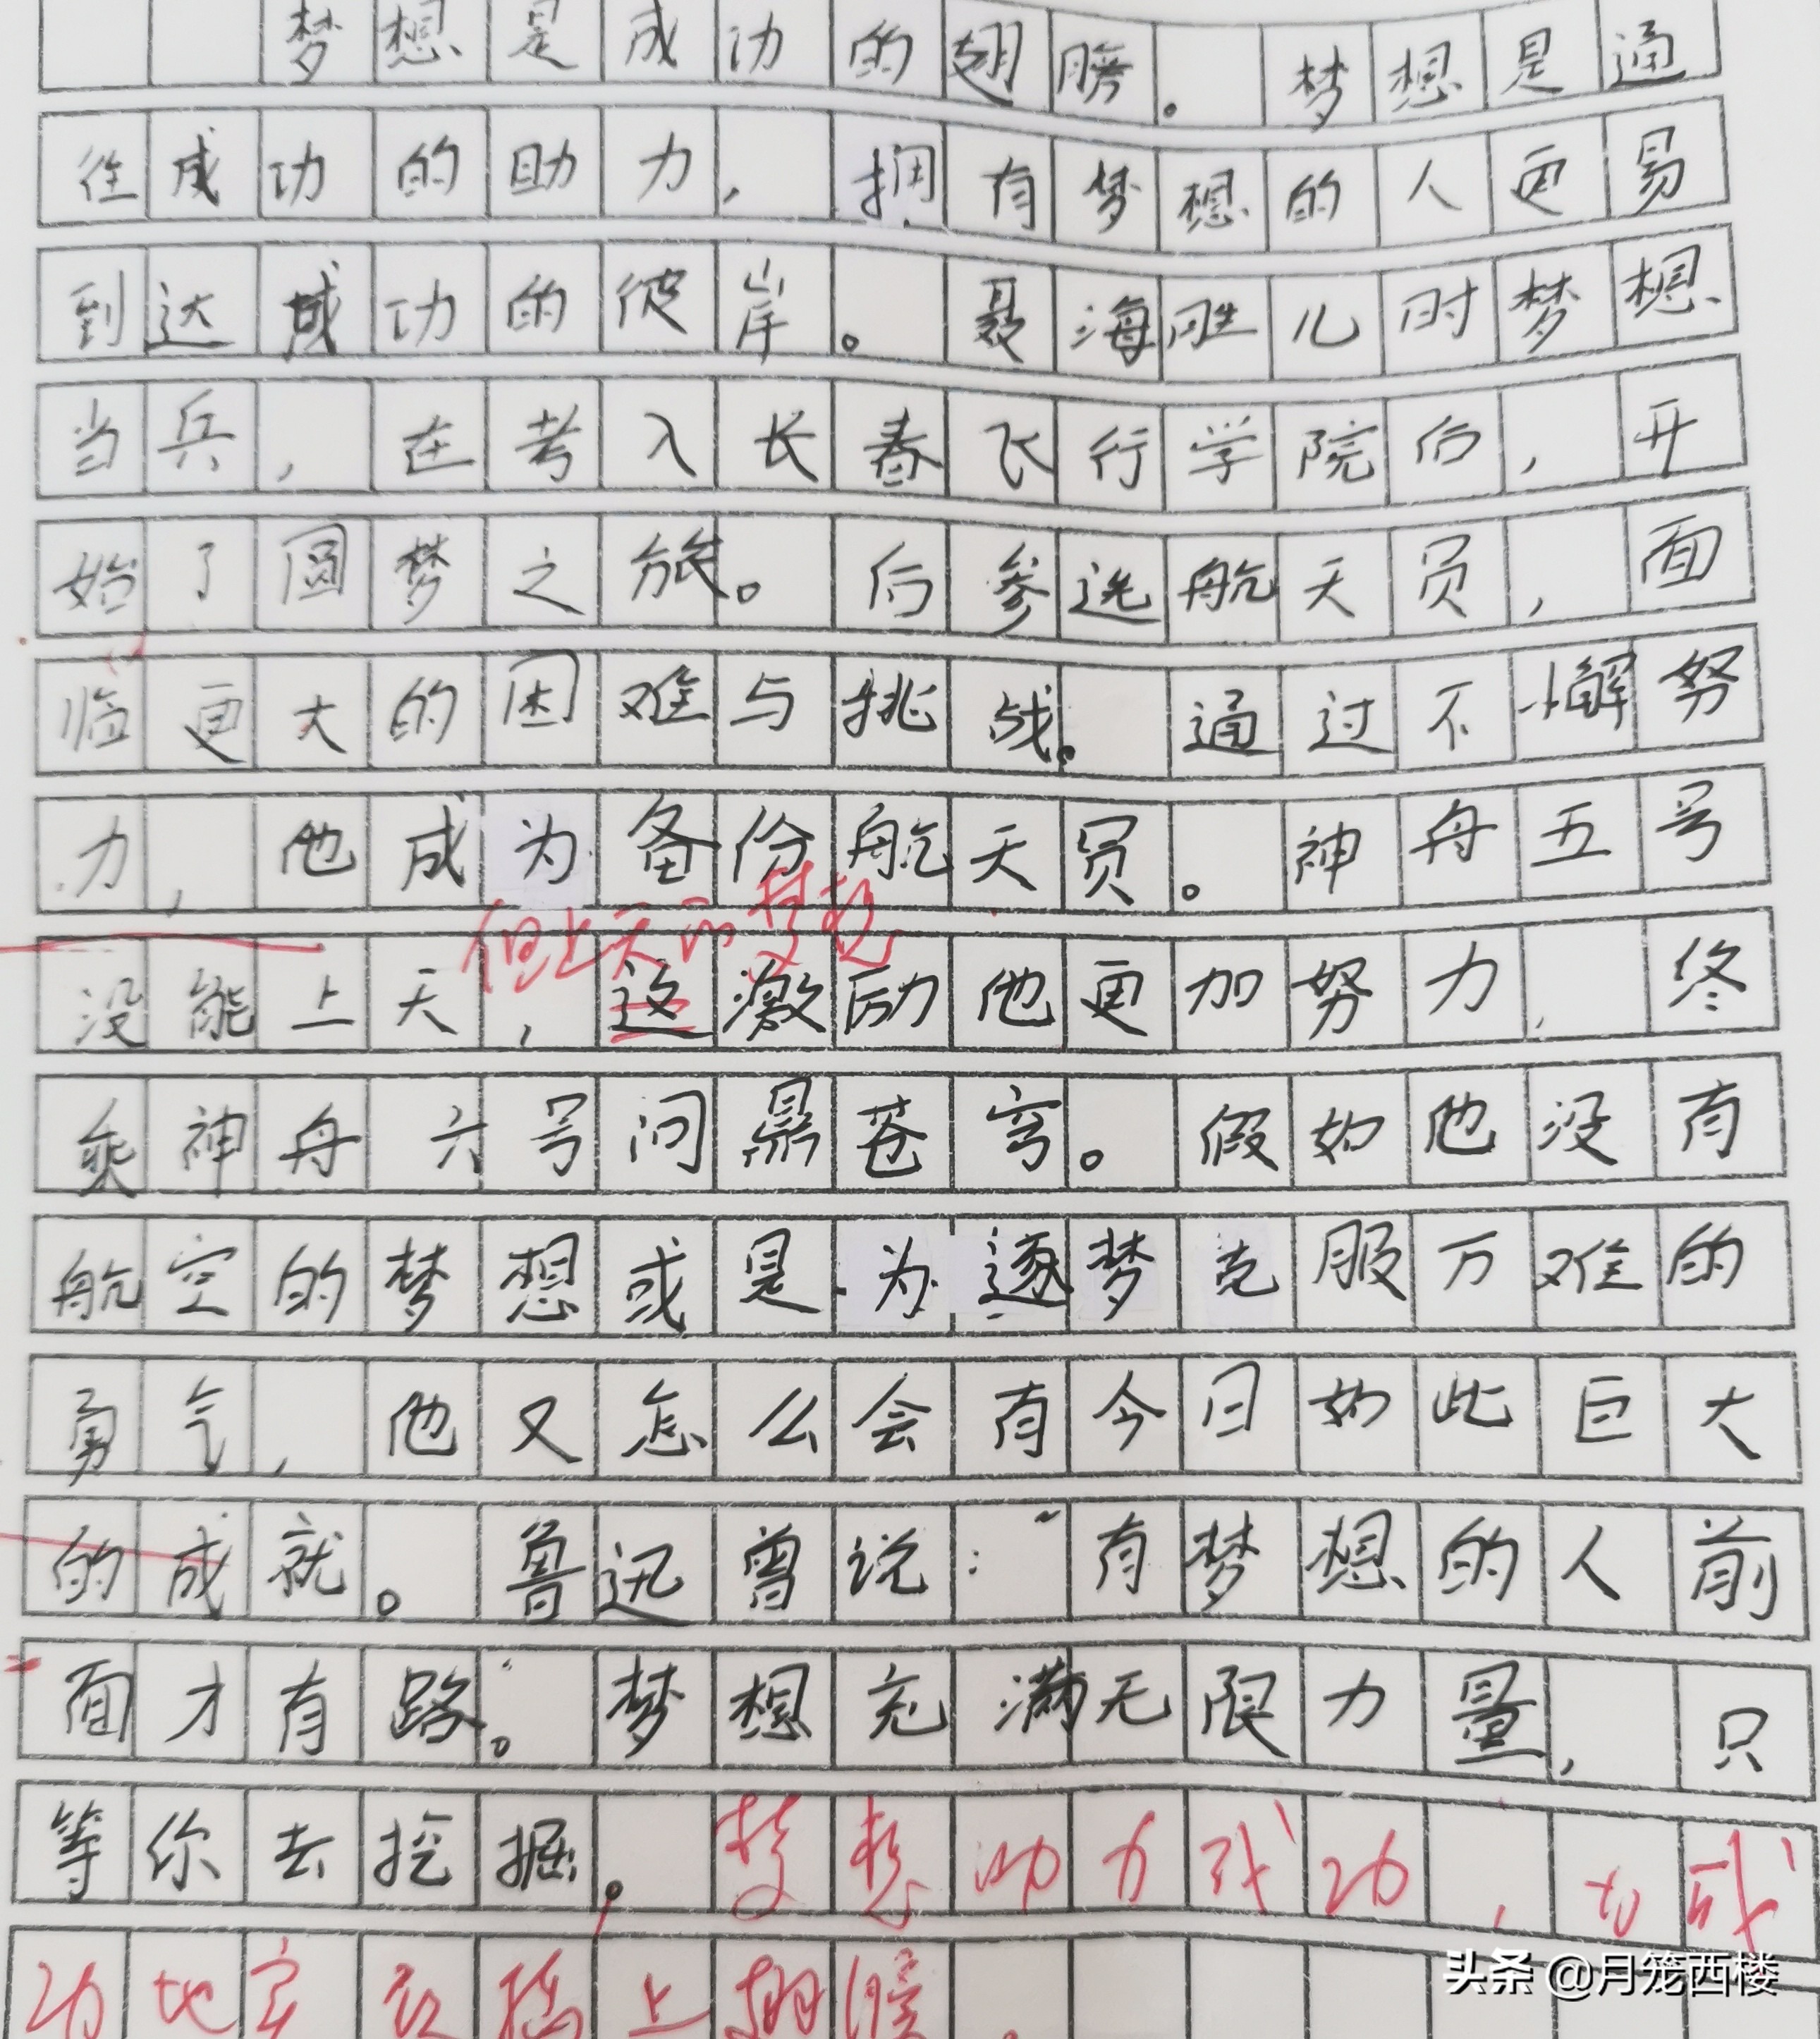 梦想是成功的翅膀。梦想是通
往成功的助力，拥有梦想的人更易
到达成功的彼岸。聂海胜儿时梦想
当兵，在考入长春飞行学院后，开
始了圆梦之旅。后参选航天员，面
临更大的困难与挑战。通过不懈努
力，他成为备份航天员。神舟五号
但上天的梦想
没能上天，这激励他更加努力，终
乘神舟六号问鼎苍穹。假如他没有
航空的梦想或是为逐梦克服万难的
勇气，他又怎么会有今日如此巨大
的成就。鲁迅曾说：“有梦想的人前
面才有路。”梦想充满无限力量，只
等你去挖掘，梦想助力成功，为成
功地实现插上翅膀。
头条 @月笼西楼